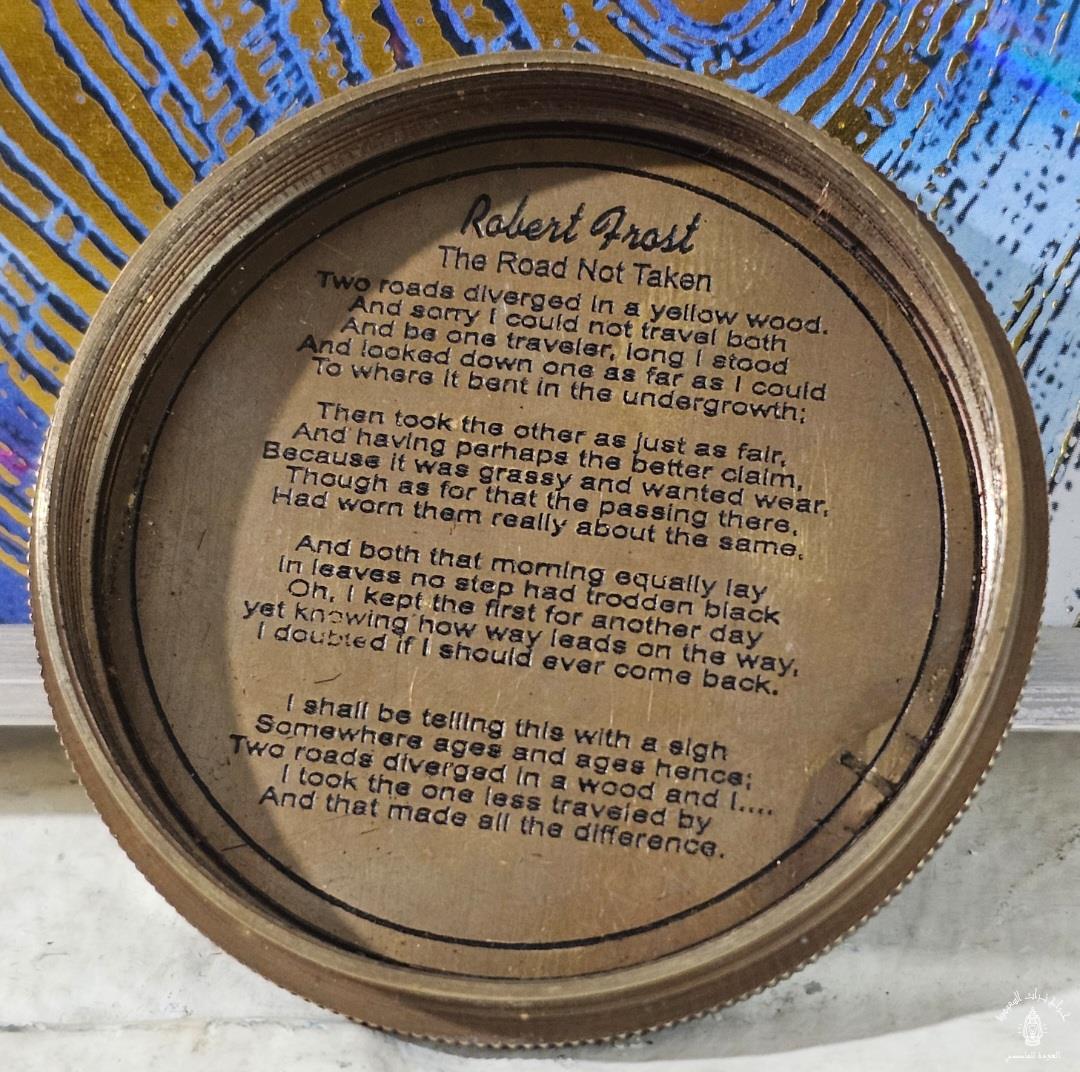 Robert Frost
The Road Not Taken
Two roads diverged in a yellow wood.
And sorry I could not travel both
And be one traveler, long I stood
And looked down one as far as I could
To where it bent in the undergrowth;
Then took the other as just as fair,
And having perhaps the better claim,
Because it was grassy and wanted wear,
Though as for that the passing there,
Had worn them really about the same,
And both that morning equally lay
In leaves no step had trodden black
Oh, I kept the first for another day
yet knowing how way leads on the way,
I doubted if I should ever come back.
I shall be telling this with a sigh
Somewhere ages and ages hence;
Two roads diverged in a wood and I....
I took the one less traveled by
And that made all the difference.